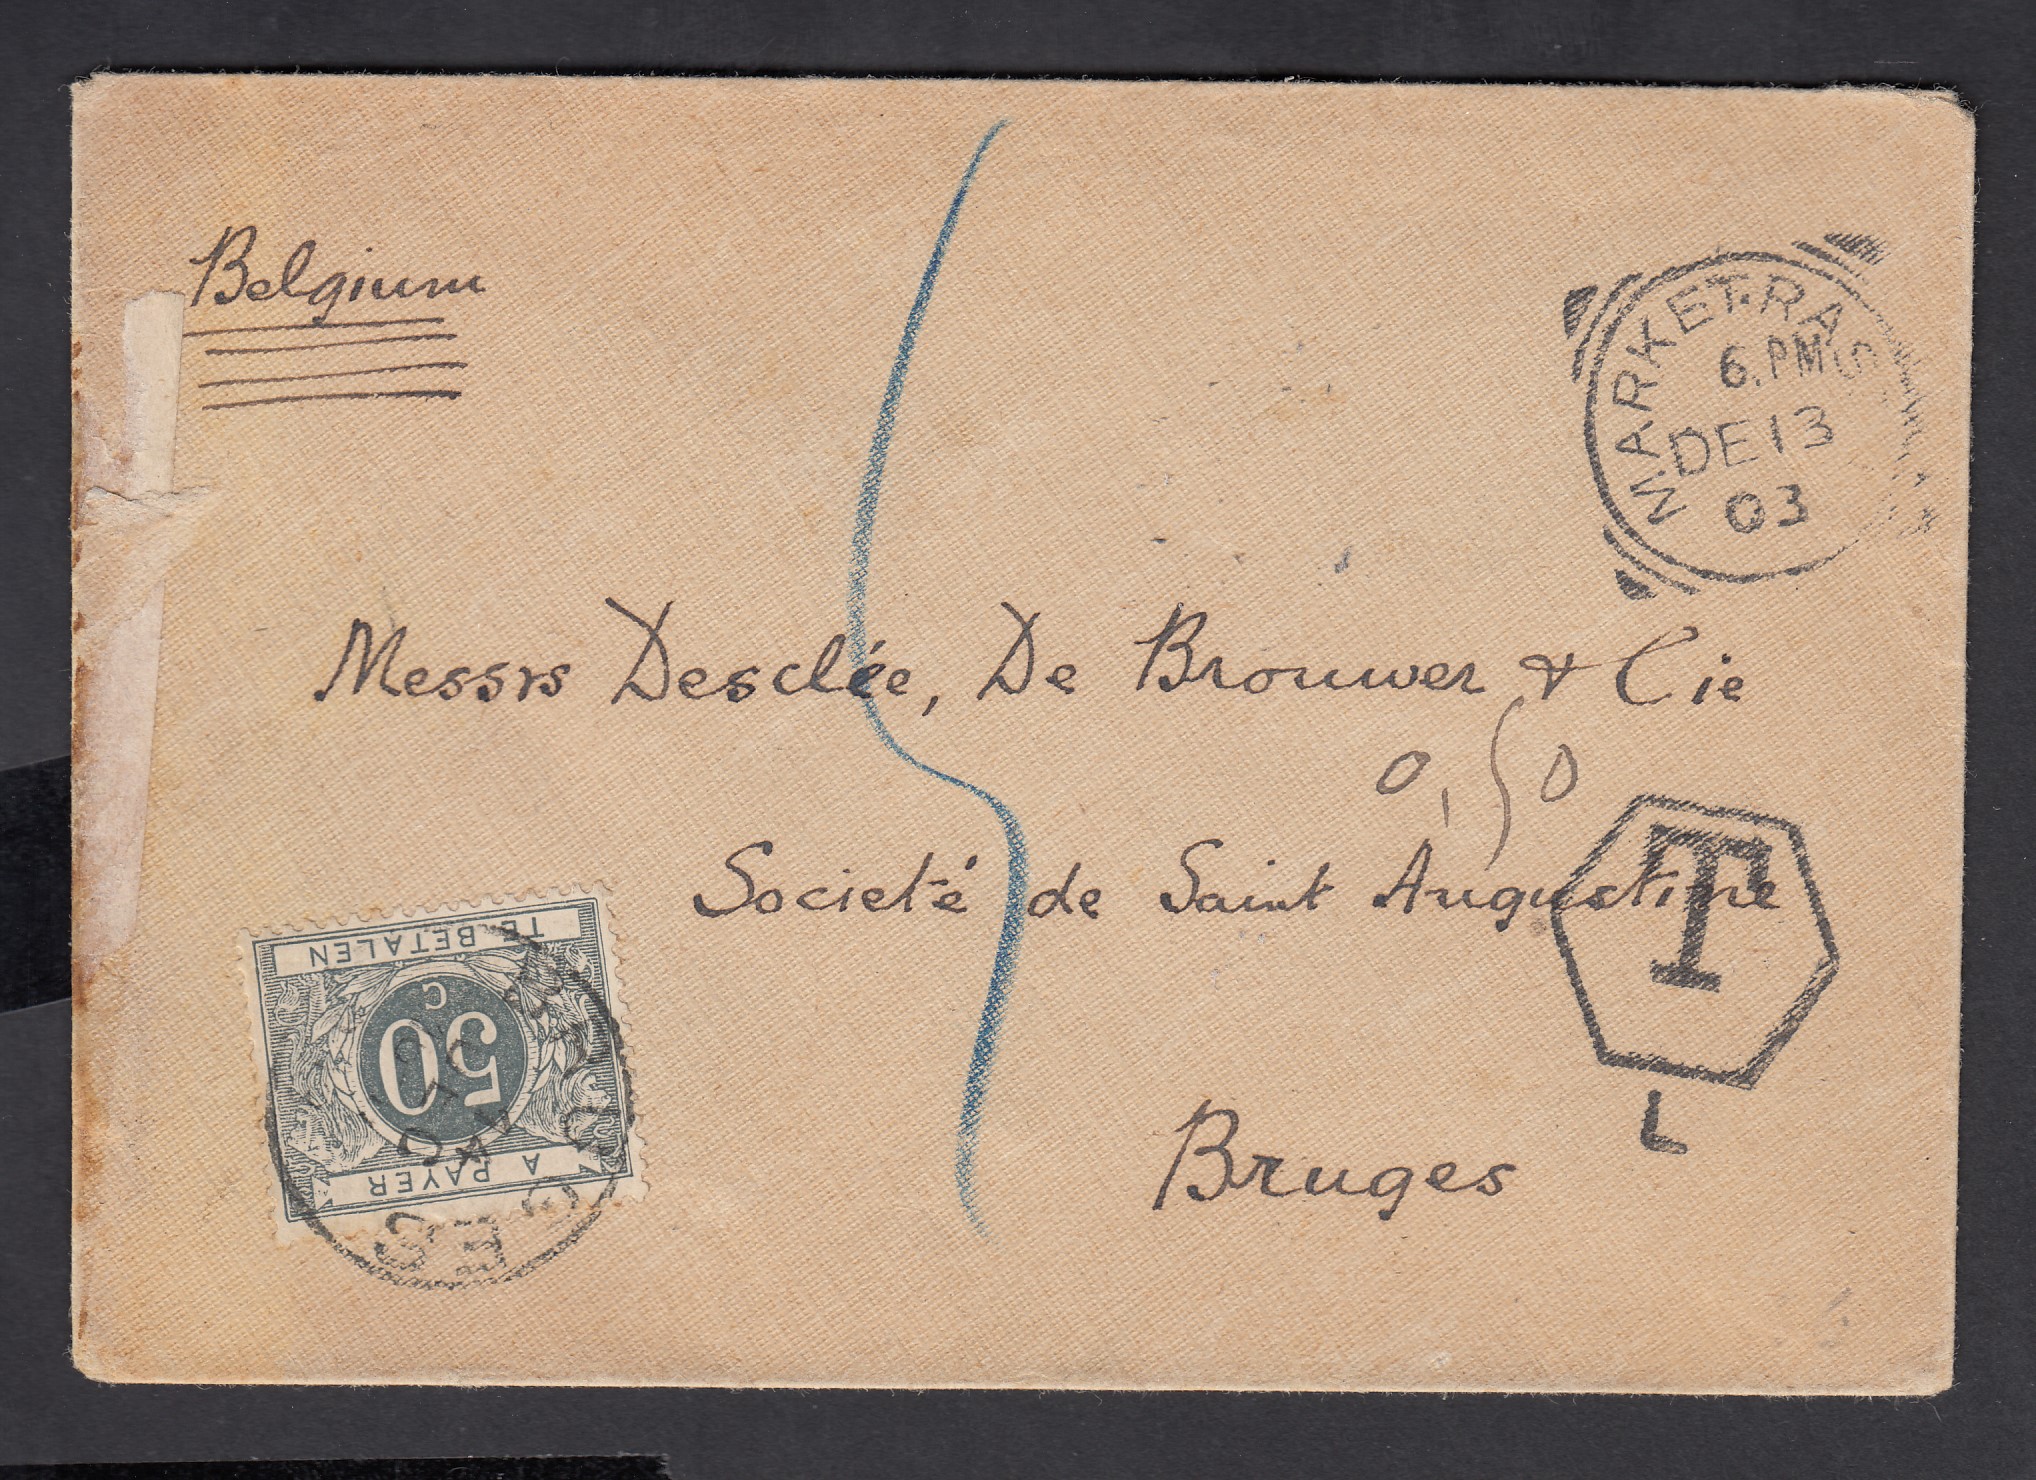 Belgium
MARKET-RAS
6.PM
DE 13
03
Messrs Desclée, De Brouwer & Cie
0,50
Societé de Saint Augustine
T
L
Bruges
TE BETALEN
50
C
A PAYER